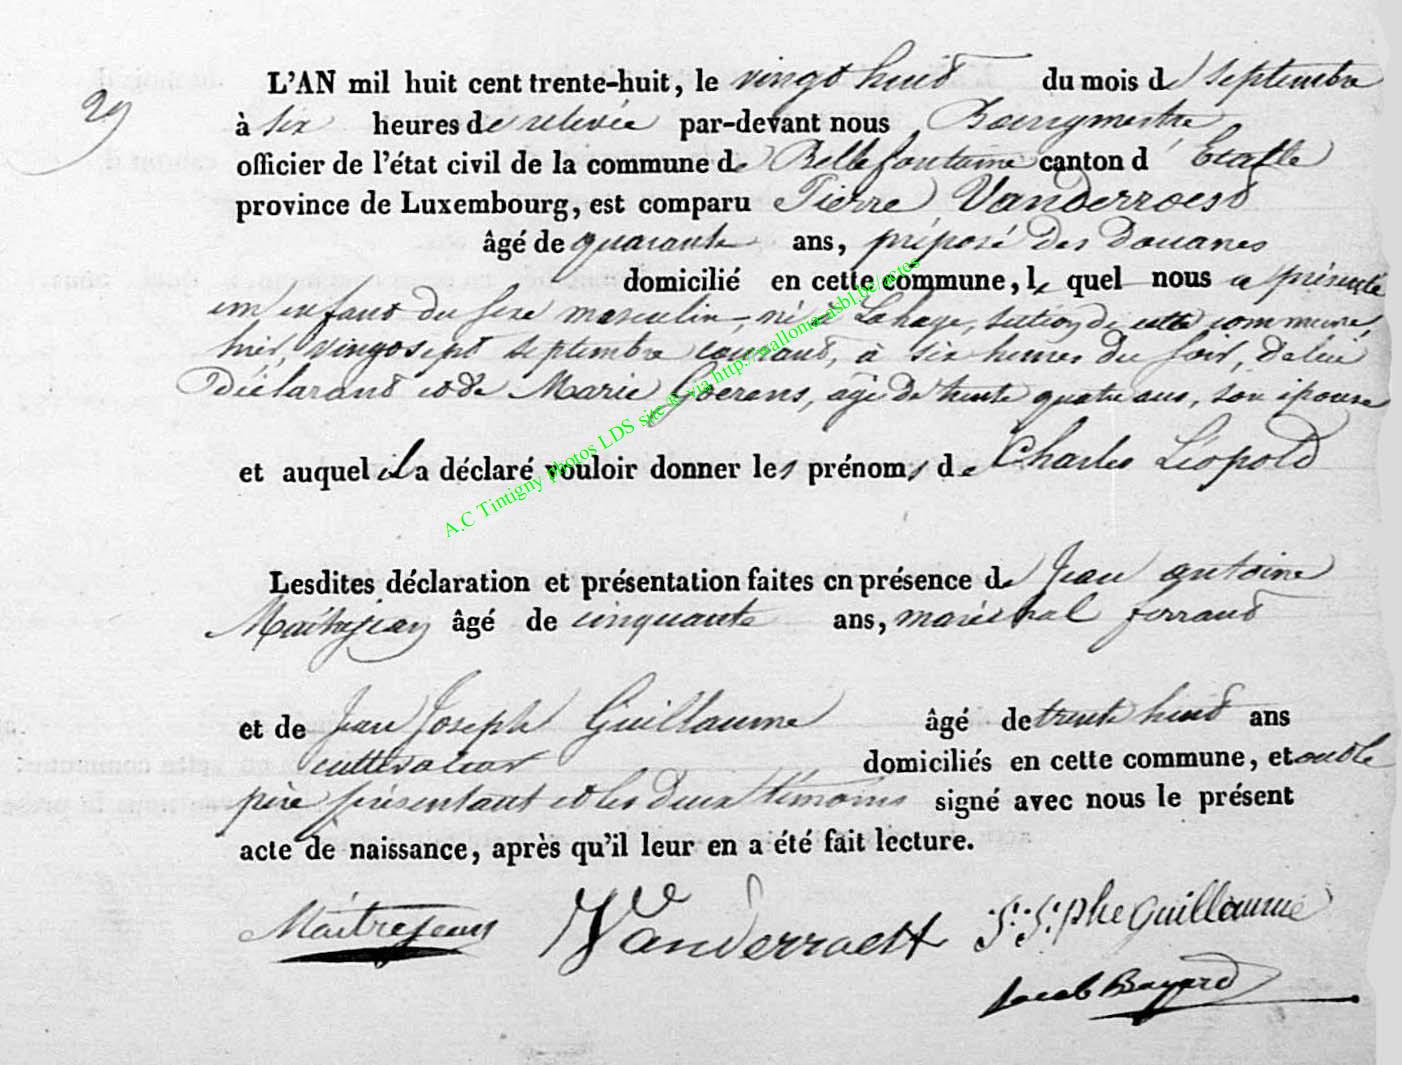 29
L'AN mil huit cent trente-huit, le vingt huit du mois de septembre
à six heures de relevée par-devant nous, Bourgmestre
officier de l'état civil de la commune de Bellefontaine canton d'Etalle
province de Luxembourg, est comparu Pierre Vanderroest
âgé de quarante ans, préposé des douanes
domicilié en cette commune, le quel nous a présenté
un enfant du sexe masculin, né à Lahage, section de cette commune,
hier, vingt sept septembre courant, à six heures du soir, de lui
Déclarant et de Marie Goerens, âgé de trente quatre ans, son épouse
et auquel il a déclaré vouloir donner les prénoms de Charles Léopold
Lesdites déclaration et présentation faites en présence de Jean antoine
Maitrejean âgé de cinquante ans, maréchal ferrant
et de Jean Joseph Guillaume âgé de trente huit ans
cultivateur domiciliés en cette commune, et ont le
père présentant et les deux témoins signé avec nous le présent
acte de naissance, après qu'il leur en a été fait lecture.
Maitrejean Vanderroest J: J:phe Guillaume
Jacob Bayard
A.C Tintigny photos LDS site via http://wallonia-asbl.be/actes